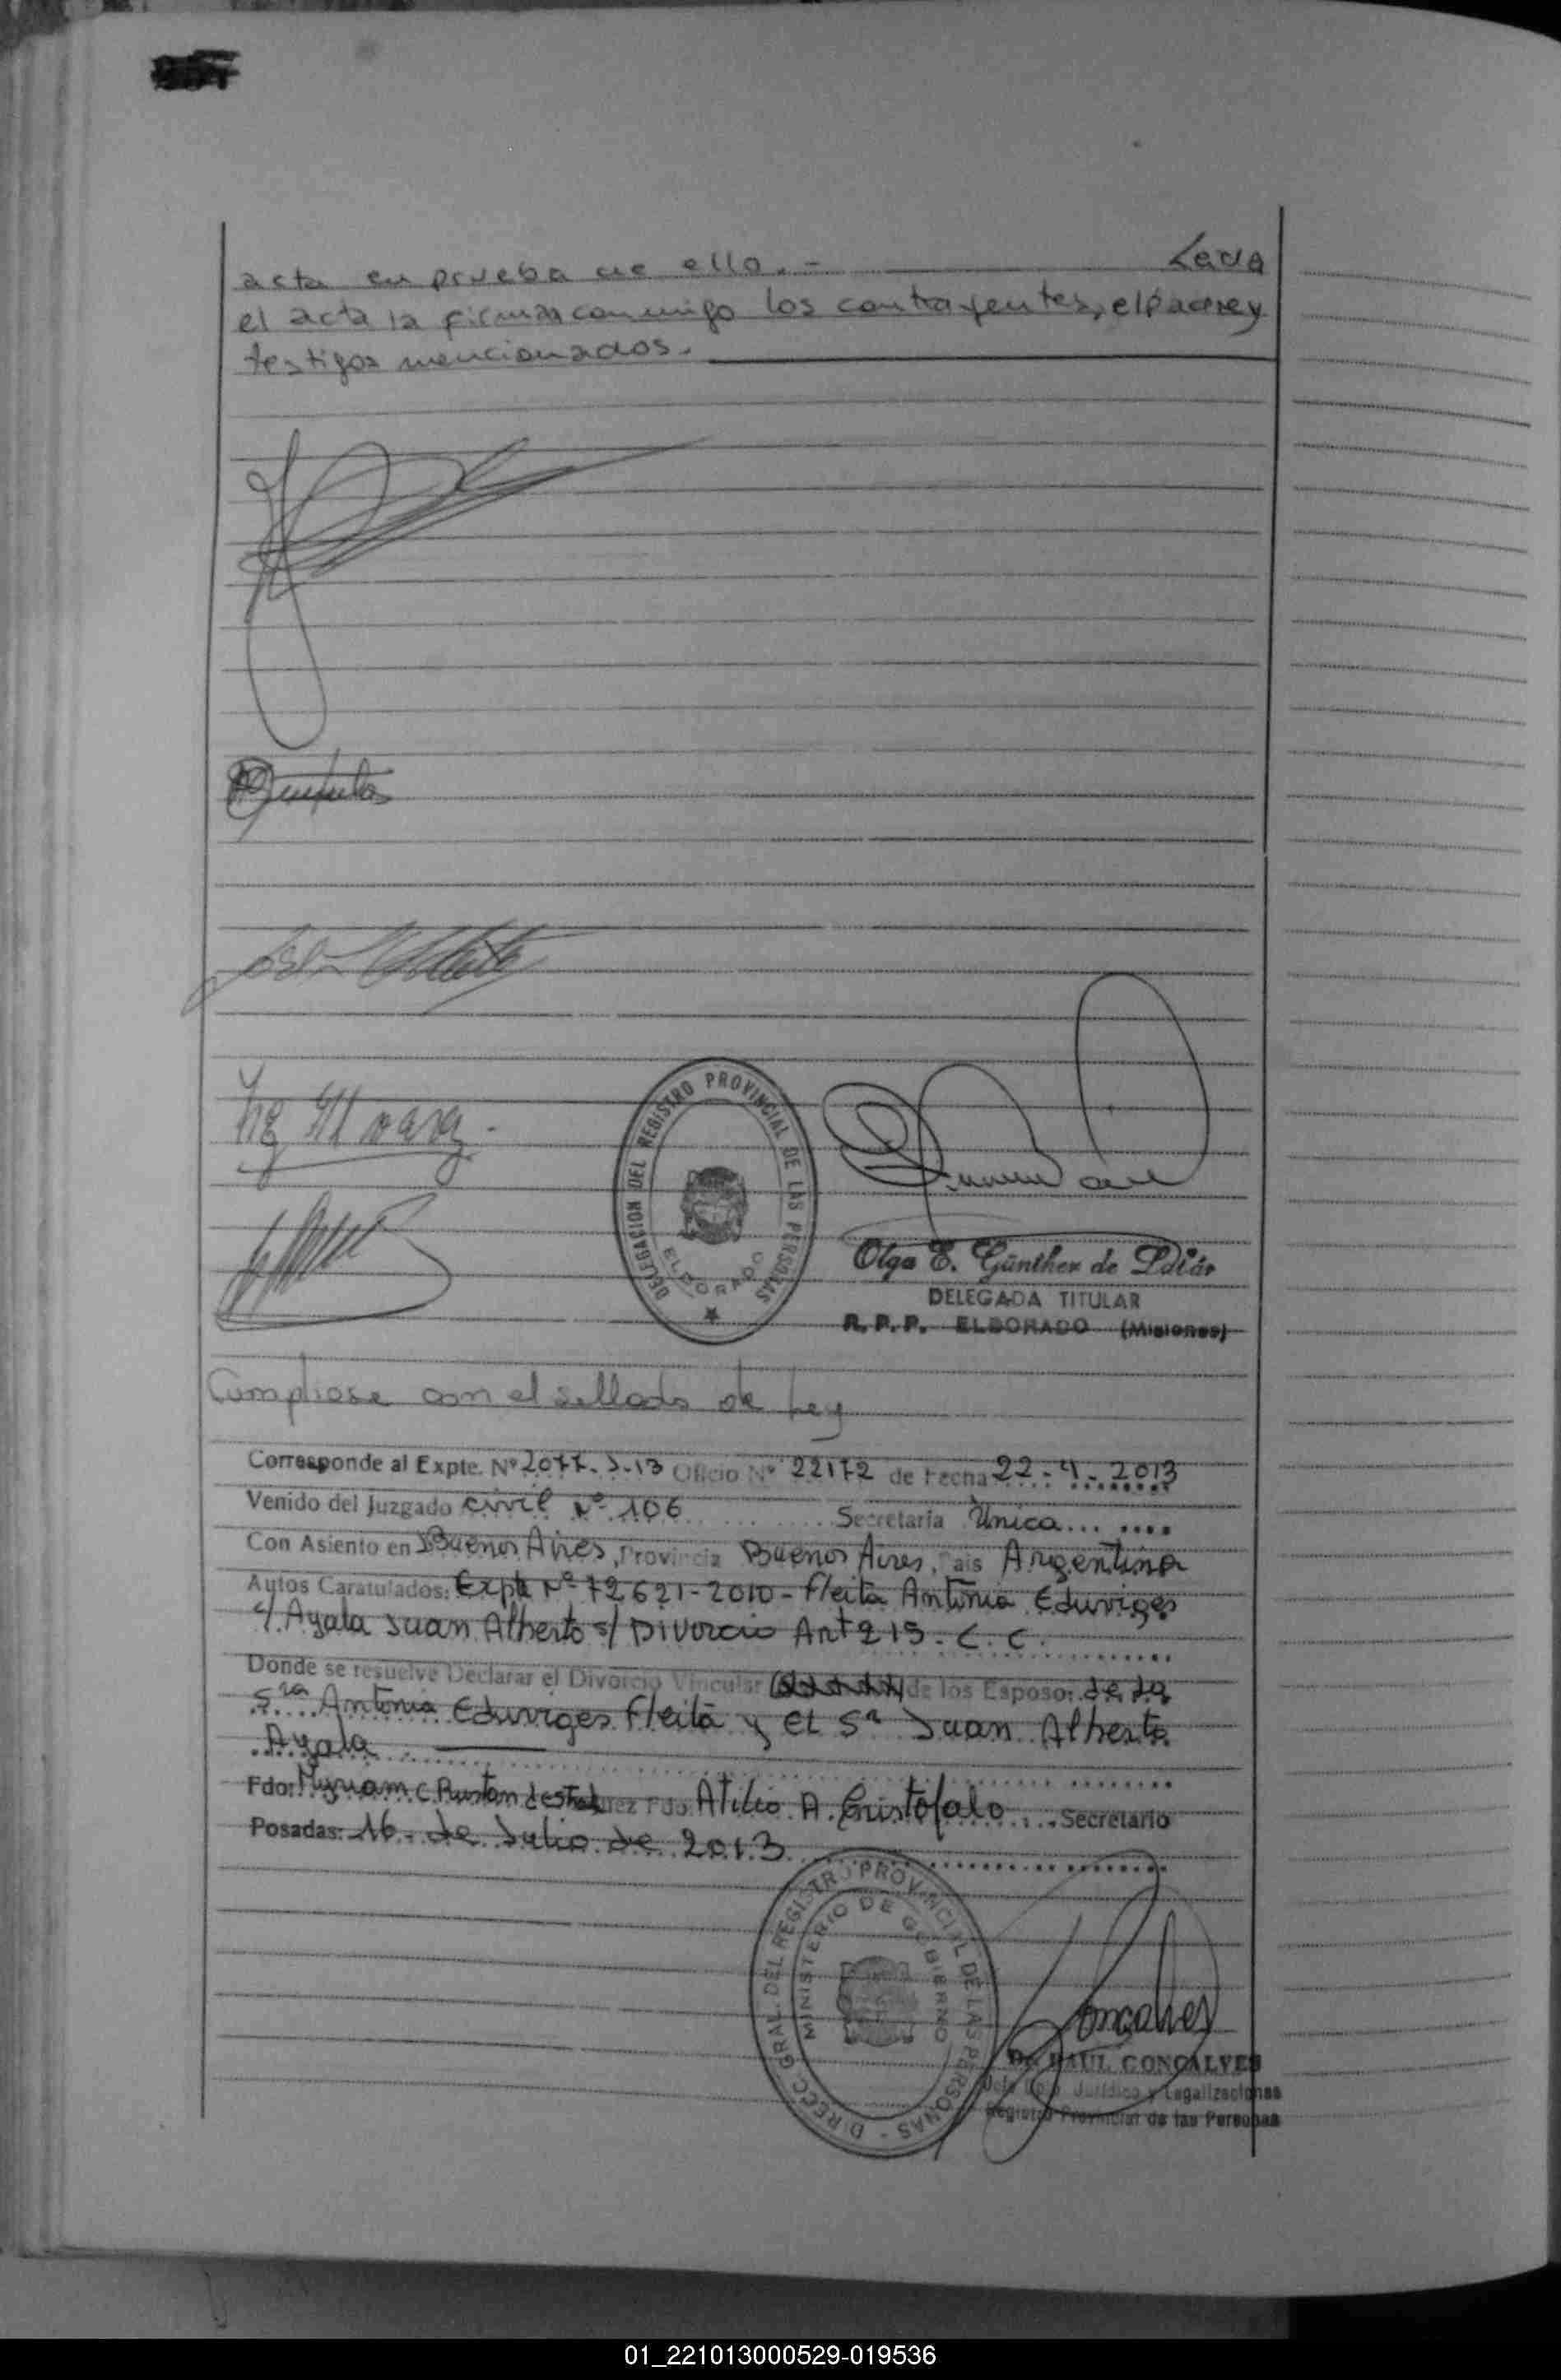 acta en prueba de ello.- Leida
el acta la firman conmigo los contrayentes, el padre y
testigos mencionados.-
DELEGACION DEL REGISTRO PROVINCIAL DE LAS PERSONAS
ELDORADO
Olga E. Günther de
DELEGADA TITULAR
R. P. P. ELDORADO (Misiones)
Cumpliose con el sellado de Ley
Corresponde al Expte. Nº 2077-J-13 Oficio Nº 22172 de Fecha 22-4-2013
Venido del Juzgado civil Nº 106 Secretaria Única
Con Asiento en Buenos Aires, Provincia Buenos Aires, Pais Argentina
Autos Caratulados: Expte Nº 72621-2010 - Fleita Antonia Eduviges
c/ Ayala Juan Alberto s/ Divorcio Art 215. C. C.
Donde se resuelve Declarar el Divorcio Vincular de los Esposos de la
Sra Antonia Eduviges Fleita y el Sr Juan Alberto
Ayala
Fdo: Myriam C. Juez Fdo: Atilio A. Cristofalo Secretario
Posadas: 16 de Julio de 2013
DIRECC. GRAL. DEL REGISTRO PROVINCIAL DE LAS PERSONAS
MINISTERIO DE GOBIERNO
Dr. RAUL GONCALVES
Jefe Dpto. Jurídico y Legalizaciones
Registro Provincial de las Personas
01_221013000529-019536